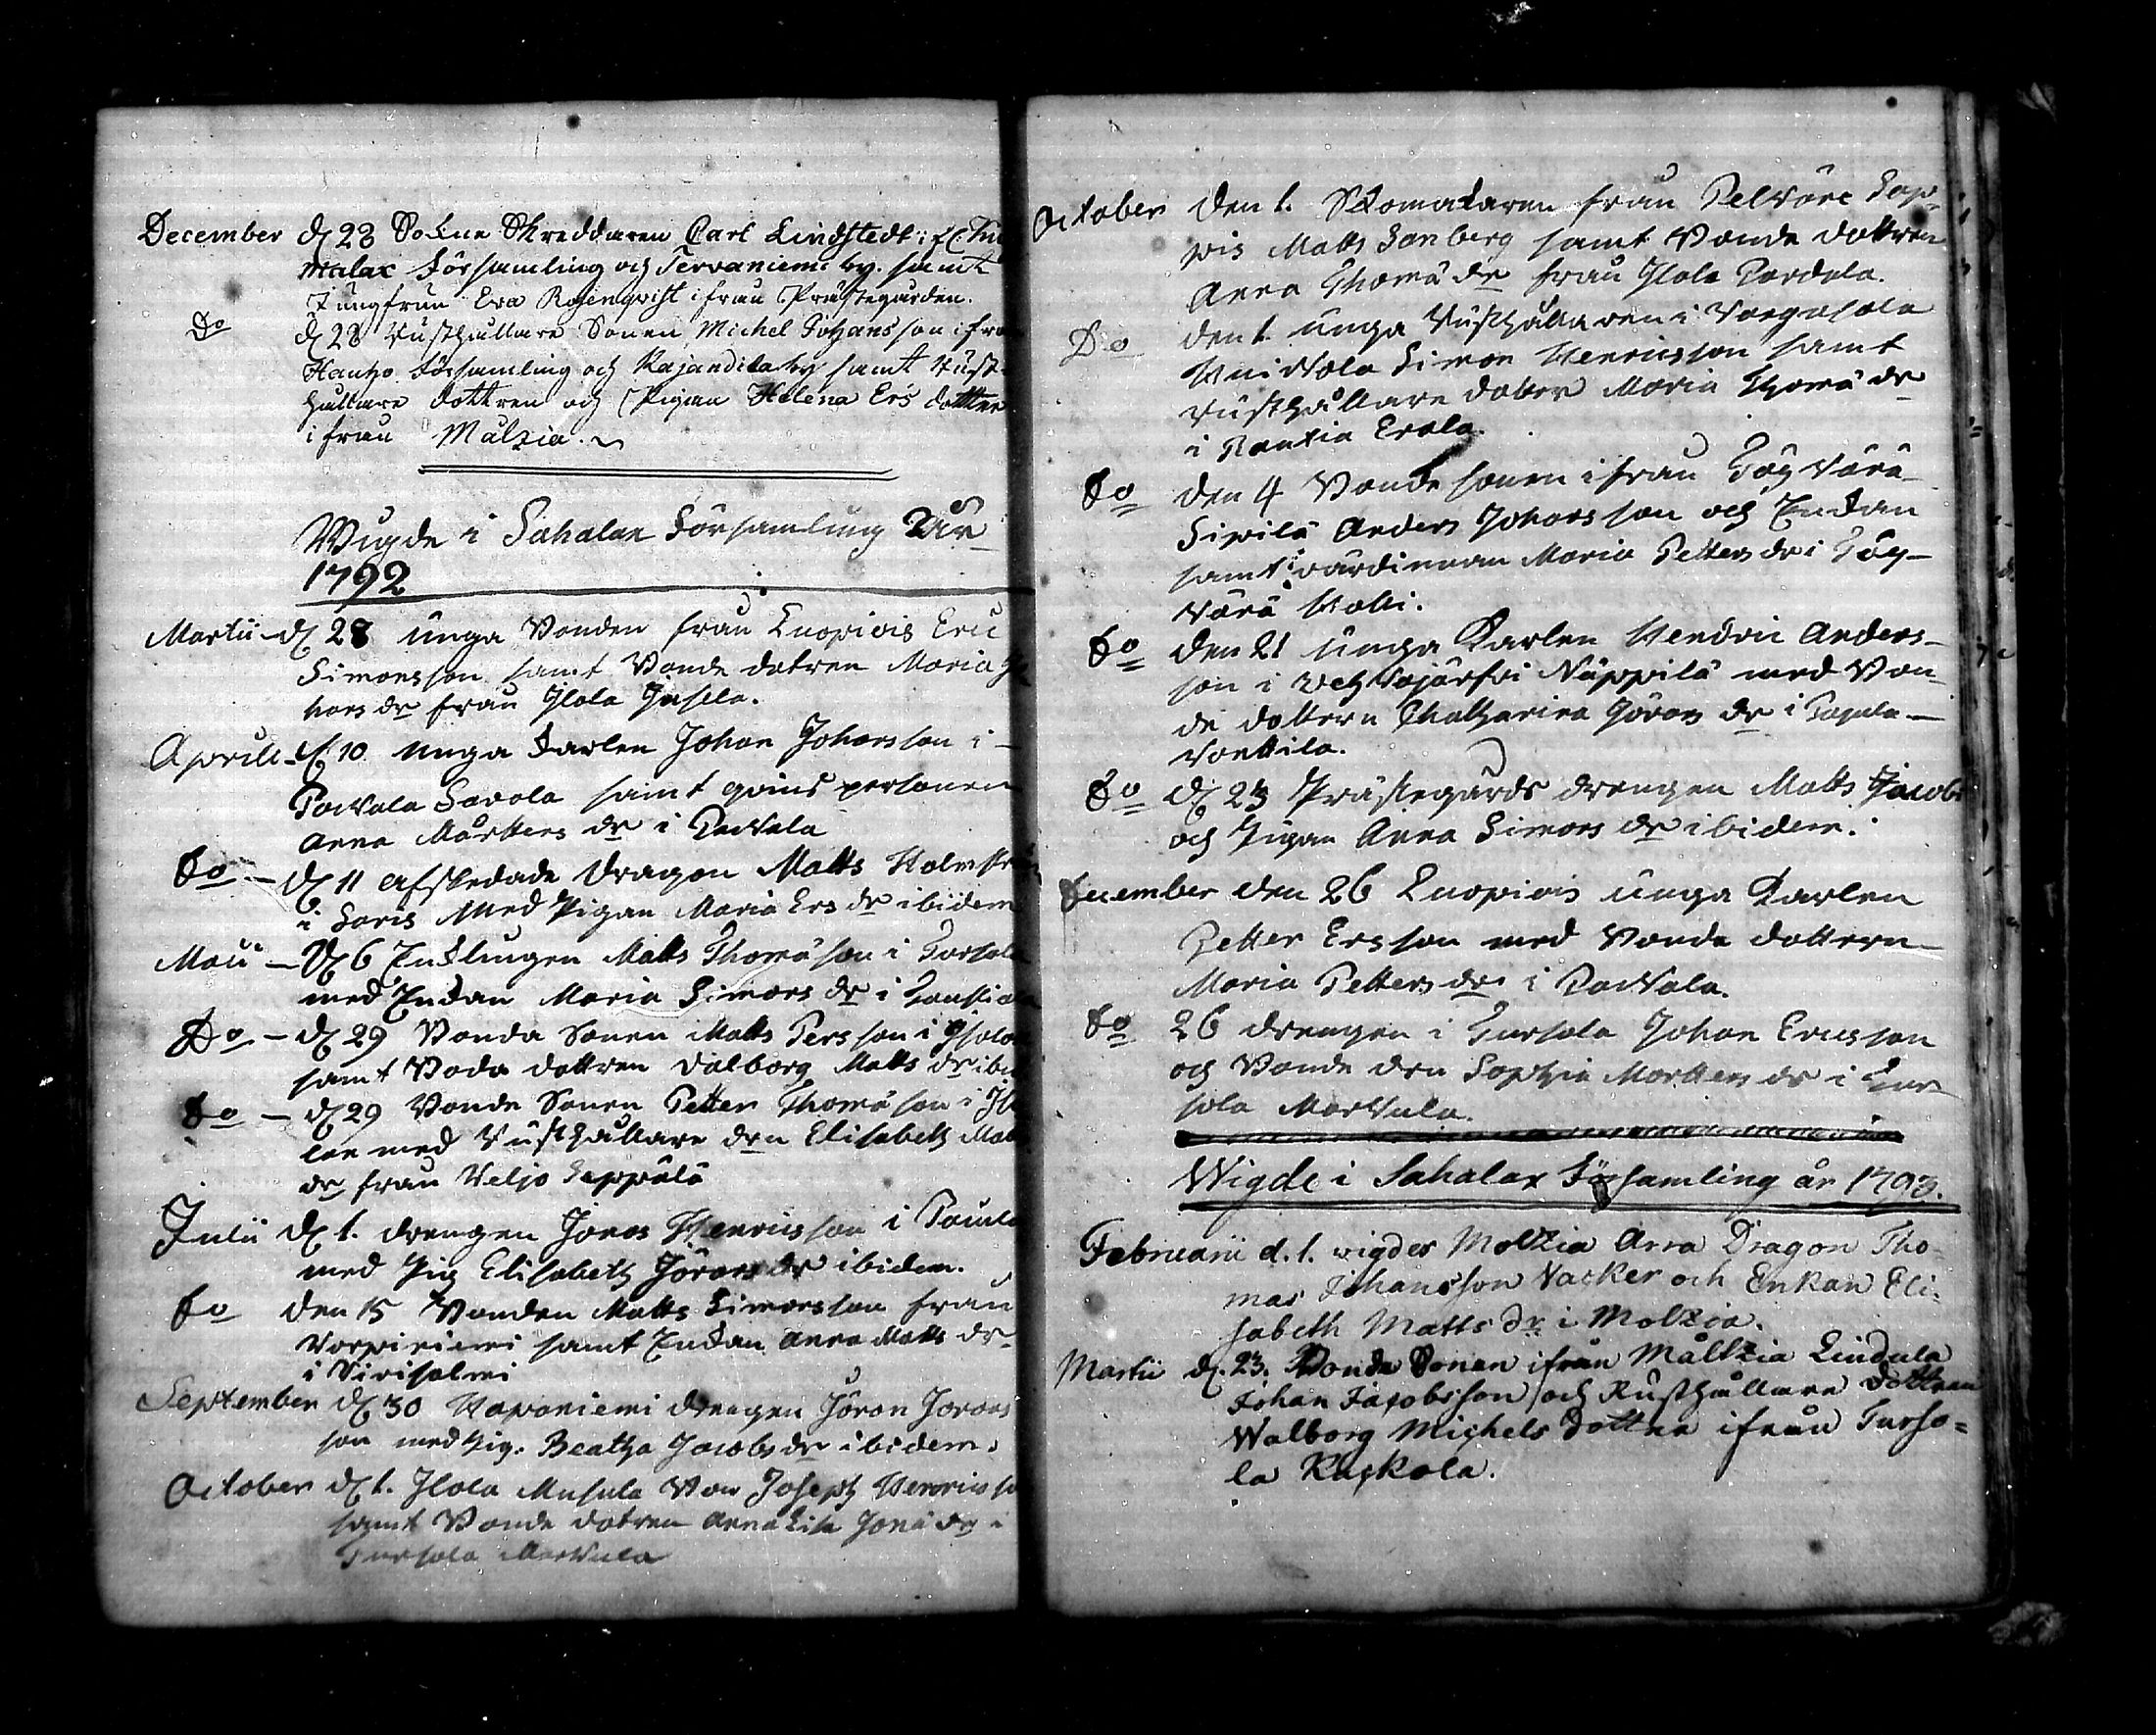 December d 28 Sokne Skreddaren Carl Lindstedt i
malax Församling och Tervaniemi by. samt
Jungfrun Eva Rosenqvist ifrån Prästegården.
Do d 28 Rusthållare Sonen Michel Johansson ifrån
Hauho Församling och by samt Rust-
hållare dottren och Pigan Helena Ers dotter
ifrån Mälzia.
Wigde i Sahalax Församling År
1792
Martii d 28 unga Bonden från Kuopiois Eric
Simonsson samt Bonde dotren Maria
hans dr från Ilola
Aprill d 10 unga Karlen Johan Johansson i
Pakkala Savola samt qvins personen
Anna Mårttens dr i Pakkala
Do d 11 afskedade Dragon Matts Holmström
i Saris Med Pigan Maria Ers dr ibidem
Maii d 6 Enklingen Matts Thomæson i Tursola
med Enkan Maria Simons dr i
Do d 29 Bonda Sonen Matts Persson i
samt Boda dottren Valborg Matts dr
Do d 29 Bonde Sonen Petter Thomæson i
lan med Rusthållare drn Elisabeth
dr från Keljo Seppälä
Julii d 1. drengen Jonas Henricsson i
med Pig Elisabeth Jörans dr ibidem.
Do den 15 Bonden Matts Simonsson från
Vorpiniemi samt Enkan Anna Matts dr
i
September d 30 Haponiemi drengen Jöran Jörans
son med Pig. Beatha Jacobs dr ibidem.
October d 1. Ilola Musula Bon Joseph Henricsson
samt Bonde dotren Anna Lisa Jonæ dr i
Tursola Markula
October den 1. Skomakaren från Pelkäne Lap-
pis Matts Sanberg samt Bonde dottren
Anna Thomæ dr från Ilola Pardala.
Do den 1. unga Rusthållaren i
Simon Henricsson samt
rusthållare dotter Maria Thomæ dr
i Rautia Erola.
Do den 4 Bonde sonen ifrån
Sipilä Anders Johansson och Enkan
samt värdinnan Maria Petters dr i

Do den 21 unga Karlen Hendric Anders-
son i Näppilä med Bon-
de dottern Chatharina Jörans dr i
Vonttila.
Do d 23 Prästegårds drengen Matts Jacobs
och Pigan Anna Simons dr ibidem.
December den 26 Kuopiois unga Karlen
Petter Ersson med Bonde dottern
Maria Petters dr i Pakkala.
Do 26 drengen i Tursola Johan Ericsson
och Bonde drn Sophia Morttens dr i Tur
sola Markula.
Wigde i Sahalax Församling år 1793.
Februarii d. 1. wigdes Molzia Arra Dragon Tho-
mas Johansson Vacker och Enkan Eli-
sabeth Matts dr i Molzia.
Martii d. 23. Bonde Sonen ifrån Mältzia Lindula
Johan Jacobsson och Rusthållare dottren
Walborg Michels dotter ifrån Turso=
la Kaskola.